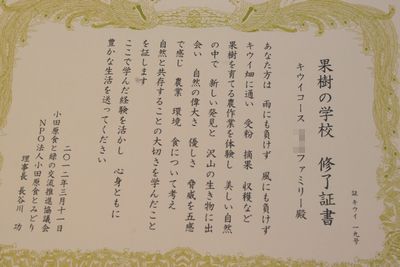 証 キウイ 一九号
果樹の学校 修了証書
キウイコース ファミリー殿
あなた方は 雨にも負けず 風にも負けず
キウイ畑に通い 受粉 摘果 収穫など
果樹を育てる農作業を体験し 美しい自然
の中で 新しい発見と 沢山の生き物に出
会い 自然の偉大さ 優しさ 脅威を五感
で感じ 農業 環境 食について考え
自然と共存することの大切さを学んだこと
を証します
ここで学んだ経験を活かし 心身ともに
豊かな生活を送ってください
二〇一二年三月十一日
小田原食と緑の交流推進協議会
NPO法人小田原食とみどり
理事長 長谷川 功